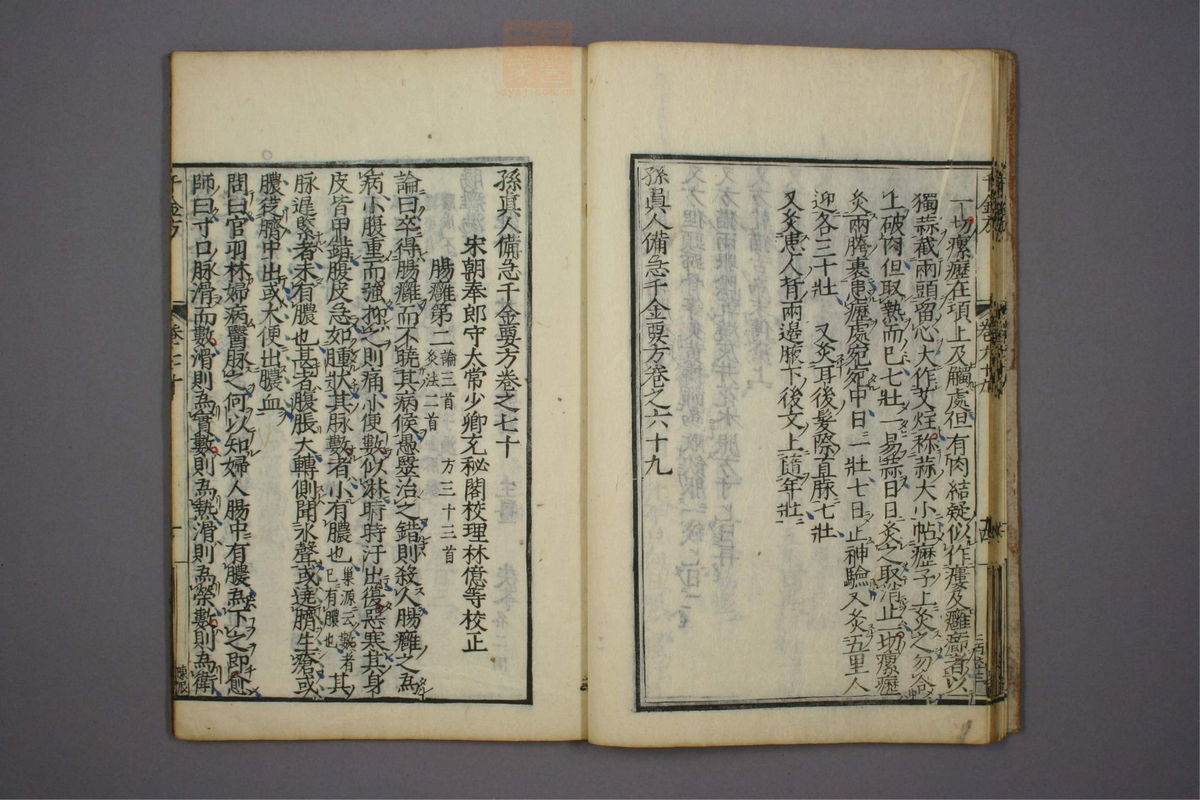 一切瘰癧在項上及觸處但有肉結凝似作瘻及癰癤者以
獨蒜截兩頭留心大作艾炷称蒜大小帖癧子上灸之勿令
上破肉但取熱而已七壯一易蒜日日灸之取消止一切瘰癧
灸兩胯裹患癧處宛宛中日一壯七日止神驗又灸五里人
迎各三十壯 又灸耳後髮際直脉七壯
又灸患人背兩邊腋下後文上隨年壯
孫眞人備急千金要方卷之六十九
孫眞人備急千金要方卷之七十
宋朝奉郎守太常少卿充秘閣校理林億等校正
腸癰第二 論三首 方三十三首 灸注二首
論曰卒得腸癰而不曉其病候愚醫治之錯則殺人腸癰之爲
病小腹重而強抑之則痛小便數似淋時時汗出復惡寒其身
皮皆甲錯腹皮急如腫狀其脉數者小有膿也 巢源云數者 已有膿也 其
脉遲緊者未有膿也甚者腹脹大轉側聞水聲或遶臍生瘡或
膿從臍中出或大便出膿血
問曰官羽林婦病醫脉之何以知婦人腸中有膿爲下之即愈
師曰寸口脉滑而數滑則爲實數則爲熱滑則爲榮數則爲衛
千金方
卷七十